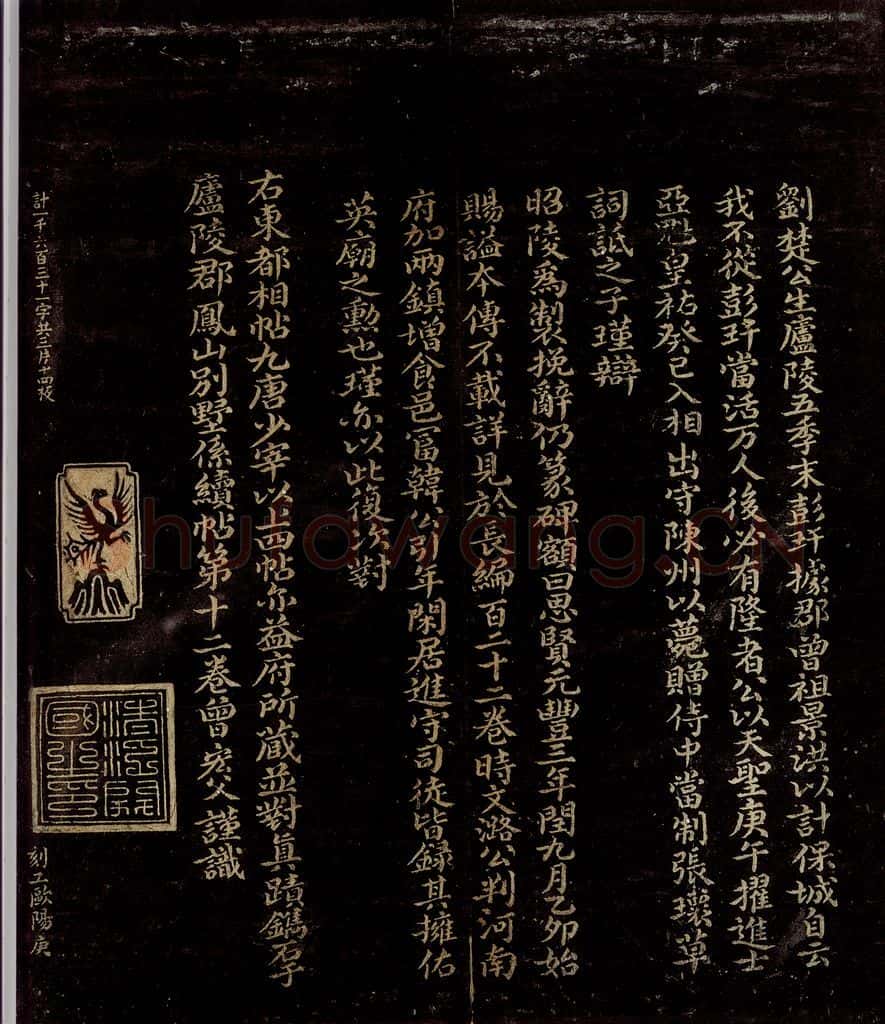 劉楚公生廬陵五季末彭玕據郡曾祖景洪以計保城自云
我不從彭玕當活万人後必有隆者公以天聖庚午擢進士
亞魁皇祐癸巳入相出守陳州以薨贈侍中當制張瓌草
詞詆之子瑾辯
昭陵為製挽辭仍篆碑額曰思賢元豐三年閏九月乙卯始
賜謚本傳不載詳見於長編百二十二卷時文潞公判河南
府加兩鎮增食邑冨韓公引年閑居進守司徒皆録其擁佑
英廟之勲也瑾亦以此復次對
右東都相帖九唐少宰以上四帖亦益府所藏並對真蹟鐫石于
廬陵郡鳳山別墅係續帖第十二卷曾宏父謹識
計一千六百三十一字共三月十四段
刻工歐陽庚
hufawang.cn